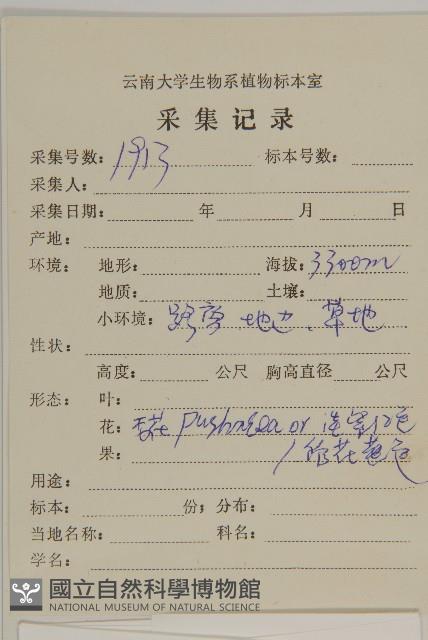 云南大学生物系植物标本室
采集记录
采集号数: 1913 标本号数:
采集人:
采集日期: 年 月 日
产地:
环境: 地形: 海拔: 3300m
地质: 土壤:
小环境: 路旁、地边、草地
性状:
高度: 公尺 胸高直径 公尺
形态: 叶:
花: or
果:
用途:
标本: 份; 分布:
当地名称: 科名:
学名:
國立自然科學博物館
NATIONAL MUSEUM OF NATURAL SCIENCE